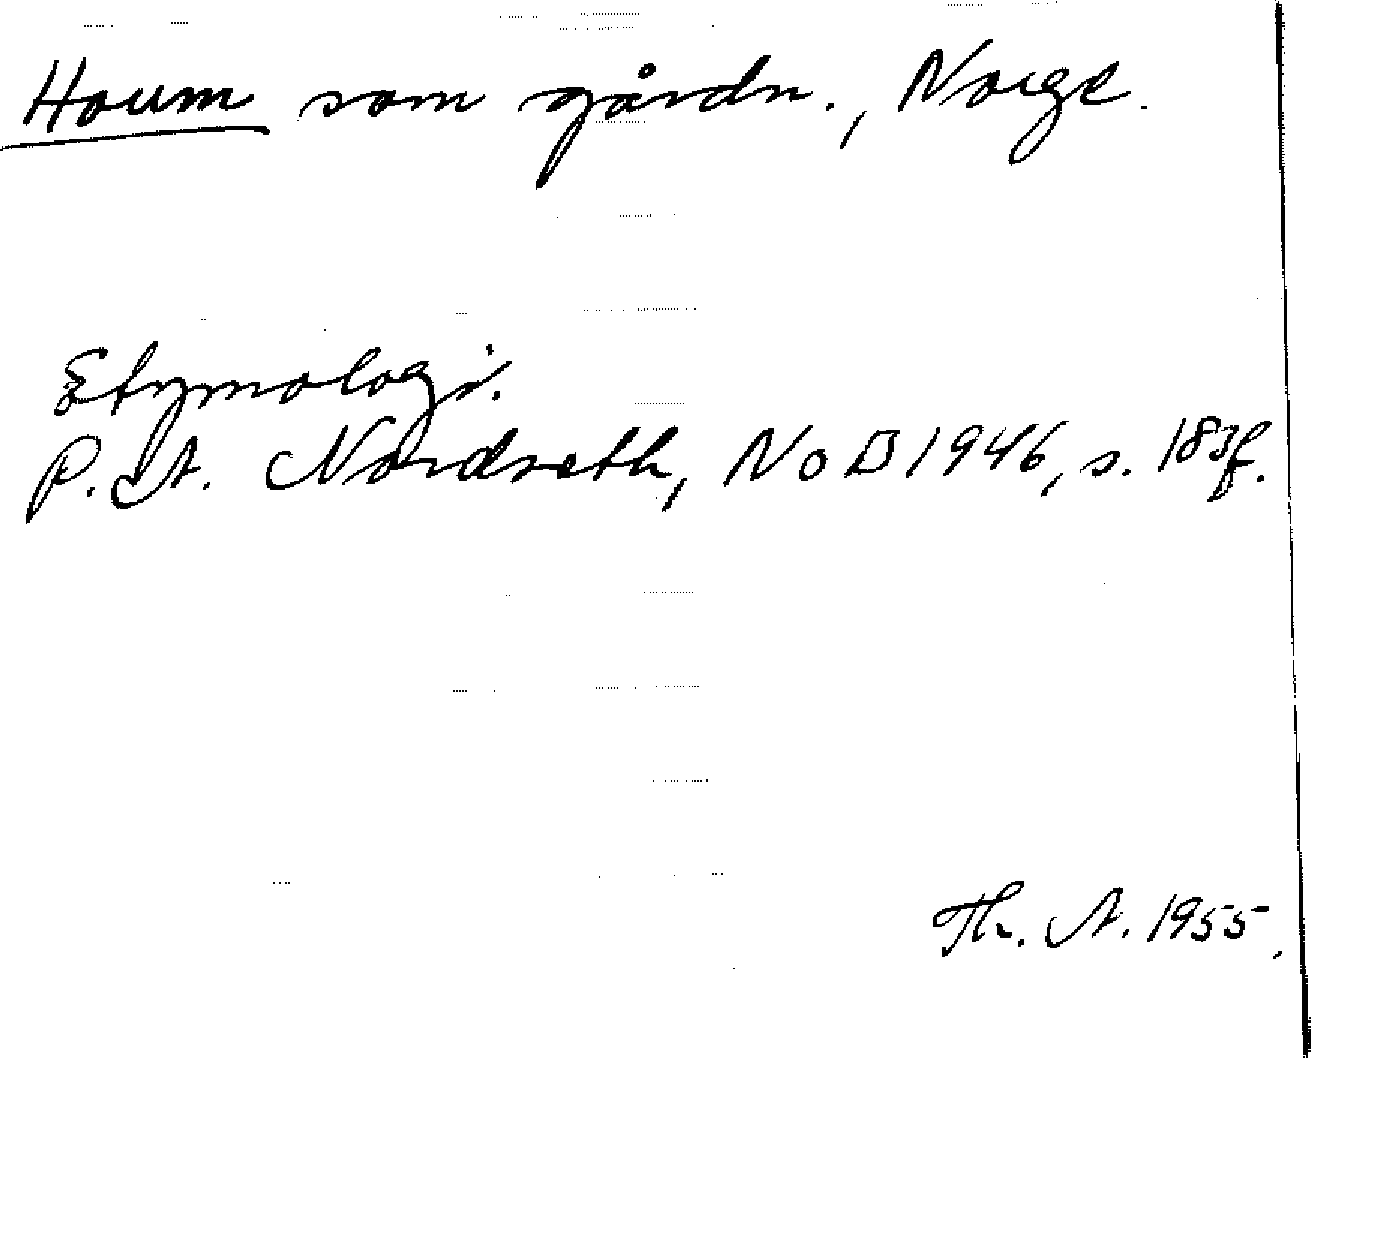 Houm som gårdn., Norge.
Etymologi.
P. A. Nordseth, NoB 1946, s. 183f.
Th. A. 1955.